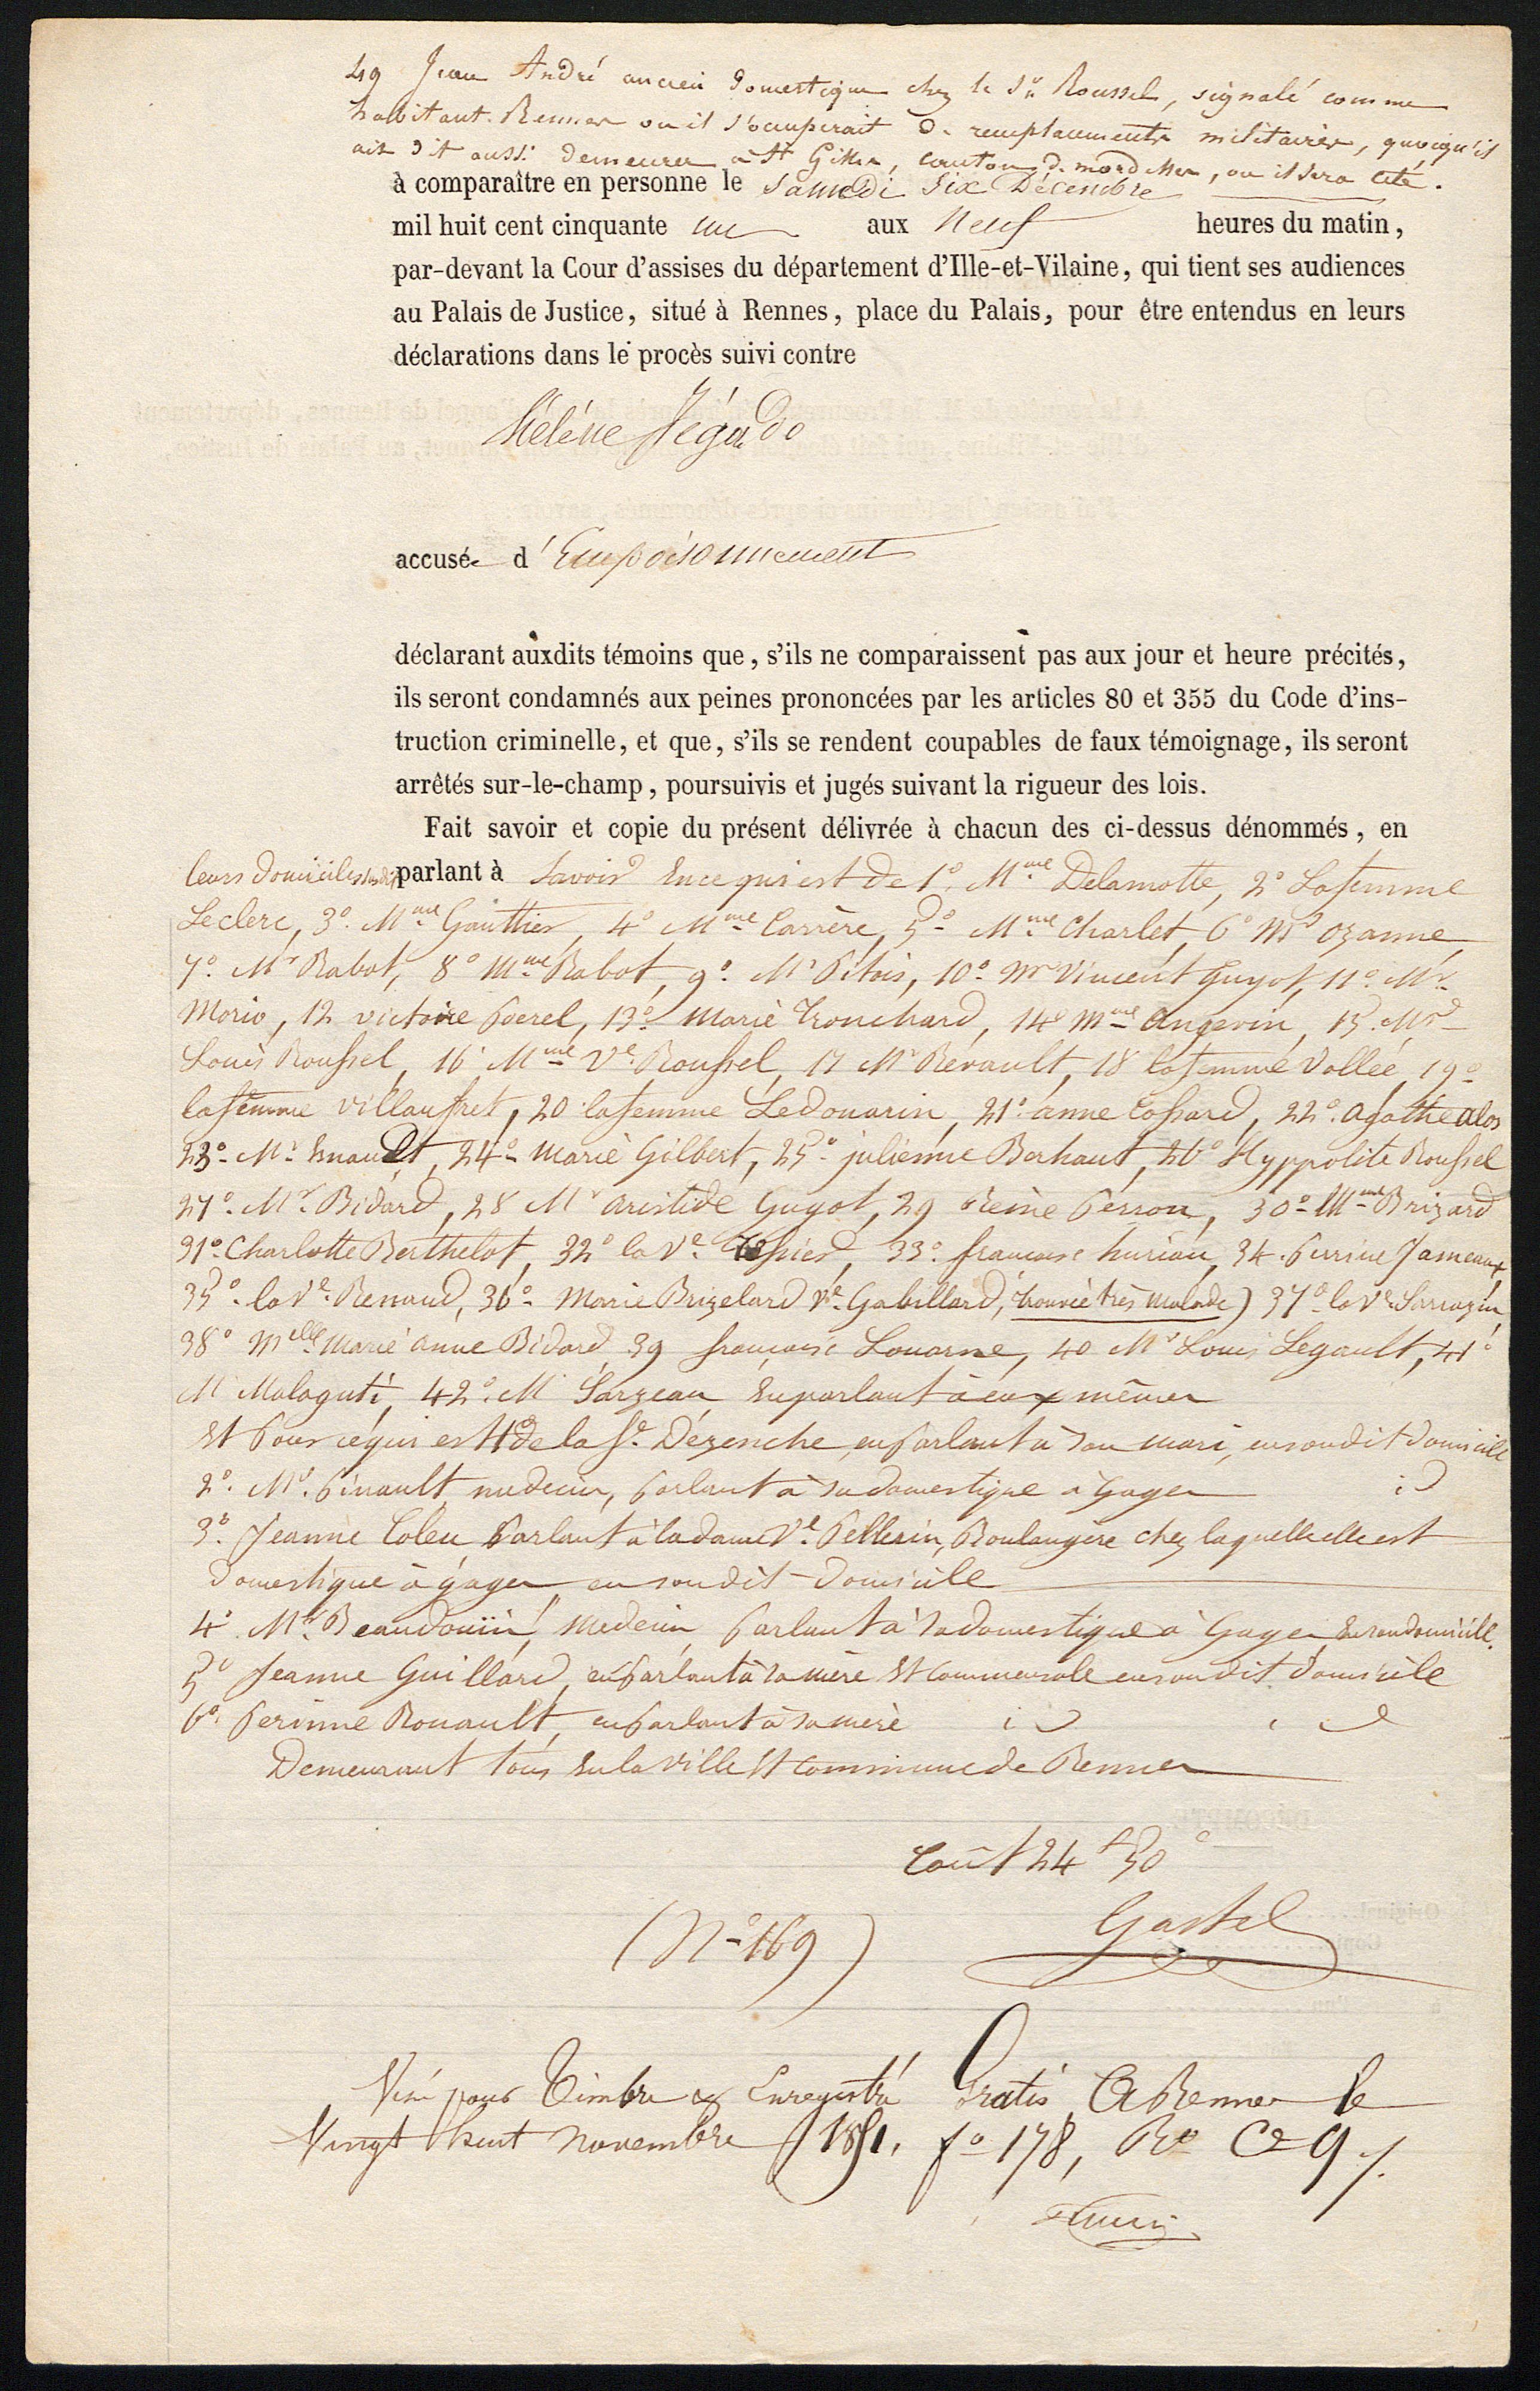 49 Jean André ancien domestique chez le Sr. Roussel, signalé comme
habitant Rennes où il s'occuperait de remplacements militaires, quoiqu'il
ait dit aussi demeurer à St Gilles, canton de mordelles, où il sera cité.
à comparaître en personne le Samedi Six Décembre
mil huit cent cinquante un aux Neuf heures du matin,
par-devant la Cour d'assises du département d'Ille-et-Vilaine, qui tient ses audiences
au Palais de Justice, situé à Rennes, place du Palais, pour être entendus en leurs
déclarations dans le procès suivi contre
Hélène Jégado
accusée d'Empoisonnement
déclarant auxdits témoins que, s'ils ne comparaissent pas aux jour et heure précités,
ils seront condamnés aux peines prononcées par les articles 80 et 355 du Code d'ins-
truction criminelle, et que, s'ils se rendent coupables de faux témoignage, ils seront
arrêtés sur-le-champ, poursuivis et jugés suivant la rigueur des lois.
Fait savoir et copie du présent délivrée à chacun des ci-dessus dénommés, en
parlant à Savoir En ce qui est de 1º. Mme Delamotte, 2º La femme
leurs domiciles susdits
Leclerc, 3º. Mme Gauthier, 4º Mme Carrère, 5º Mme Charlet, 6º Mr Ozanne,
7º. Mr Rabot, 8º Mme Rabot, 9º. Mr Pitois, 10º Mr Vincent Guyot, 11º. Mr.
Morio, 12 victoire Poerel, 13º marie Trouchard, 14º Mme Angevin, 15. Mr
Louis Roussel, 16 Mme Ve. Roussel, 17 Mr Révault, 18 la femme Vallée, 19º
la femme Villaufret, 20 la femme Ledouarin, 21º anne Cossard, 22º. Agathe alos
23º Mr Enault, 24º Marie Gilbert, 25º julienne Berhaut, 26º Hyppolite Roussel
27º. Mr. Bidard, 28 Mr aristide Guyot, 29 Reine Perron, 30º Mme Brizard
31º Charlotte Berthelot, 32º la Ve. Tessier, 33º. francoise huriau, 34. Perrine Jameaux
35º. la Ve. Renaud, 36º Marie Brizelard Ve. Gabillard, (trouvée très malade) 37º la Ve Sarrazin,
38º Melle Marie anne Bidard 39 françoise Louarne, 40 Mr Louis Legault, 41º
M Malaguti, 42º. M Sarzeau En parlant à eux mêmes
Et Pour ce qui est 1º de la fe. Dézenche, en parlant à son mari, en son dit domicile
2º. Mr. Pinault médecin, parlant à sa domestique à Gages id
3º. Jeanne Coleu Parlant à la dame Ve. Pellerin, Boulangère chez laquelle elle est
domestique à gages en son dit domicile
4º Mr. Beaudouin, medecin parlant à sa domestique à Gages, En son domicile.
5º Jeanne Guillard, en parlant à sa mère Et Commensale en son dit domicile
6º. Perinne Rouault, en parlant à sa mère id id
Demeurant tous En la ville Et Commune de Rennes
Coût 24f 50c
(Nº 169) Gastel
Visé pour Timbre & Enregistré Gratis A Rennes le
Vingt huit novembre 1851. fº 178, Rº Ce 9 /.